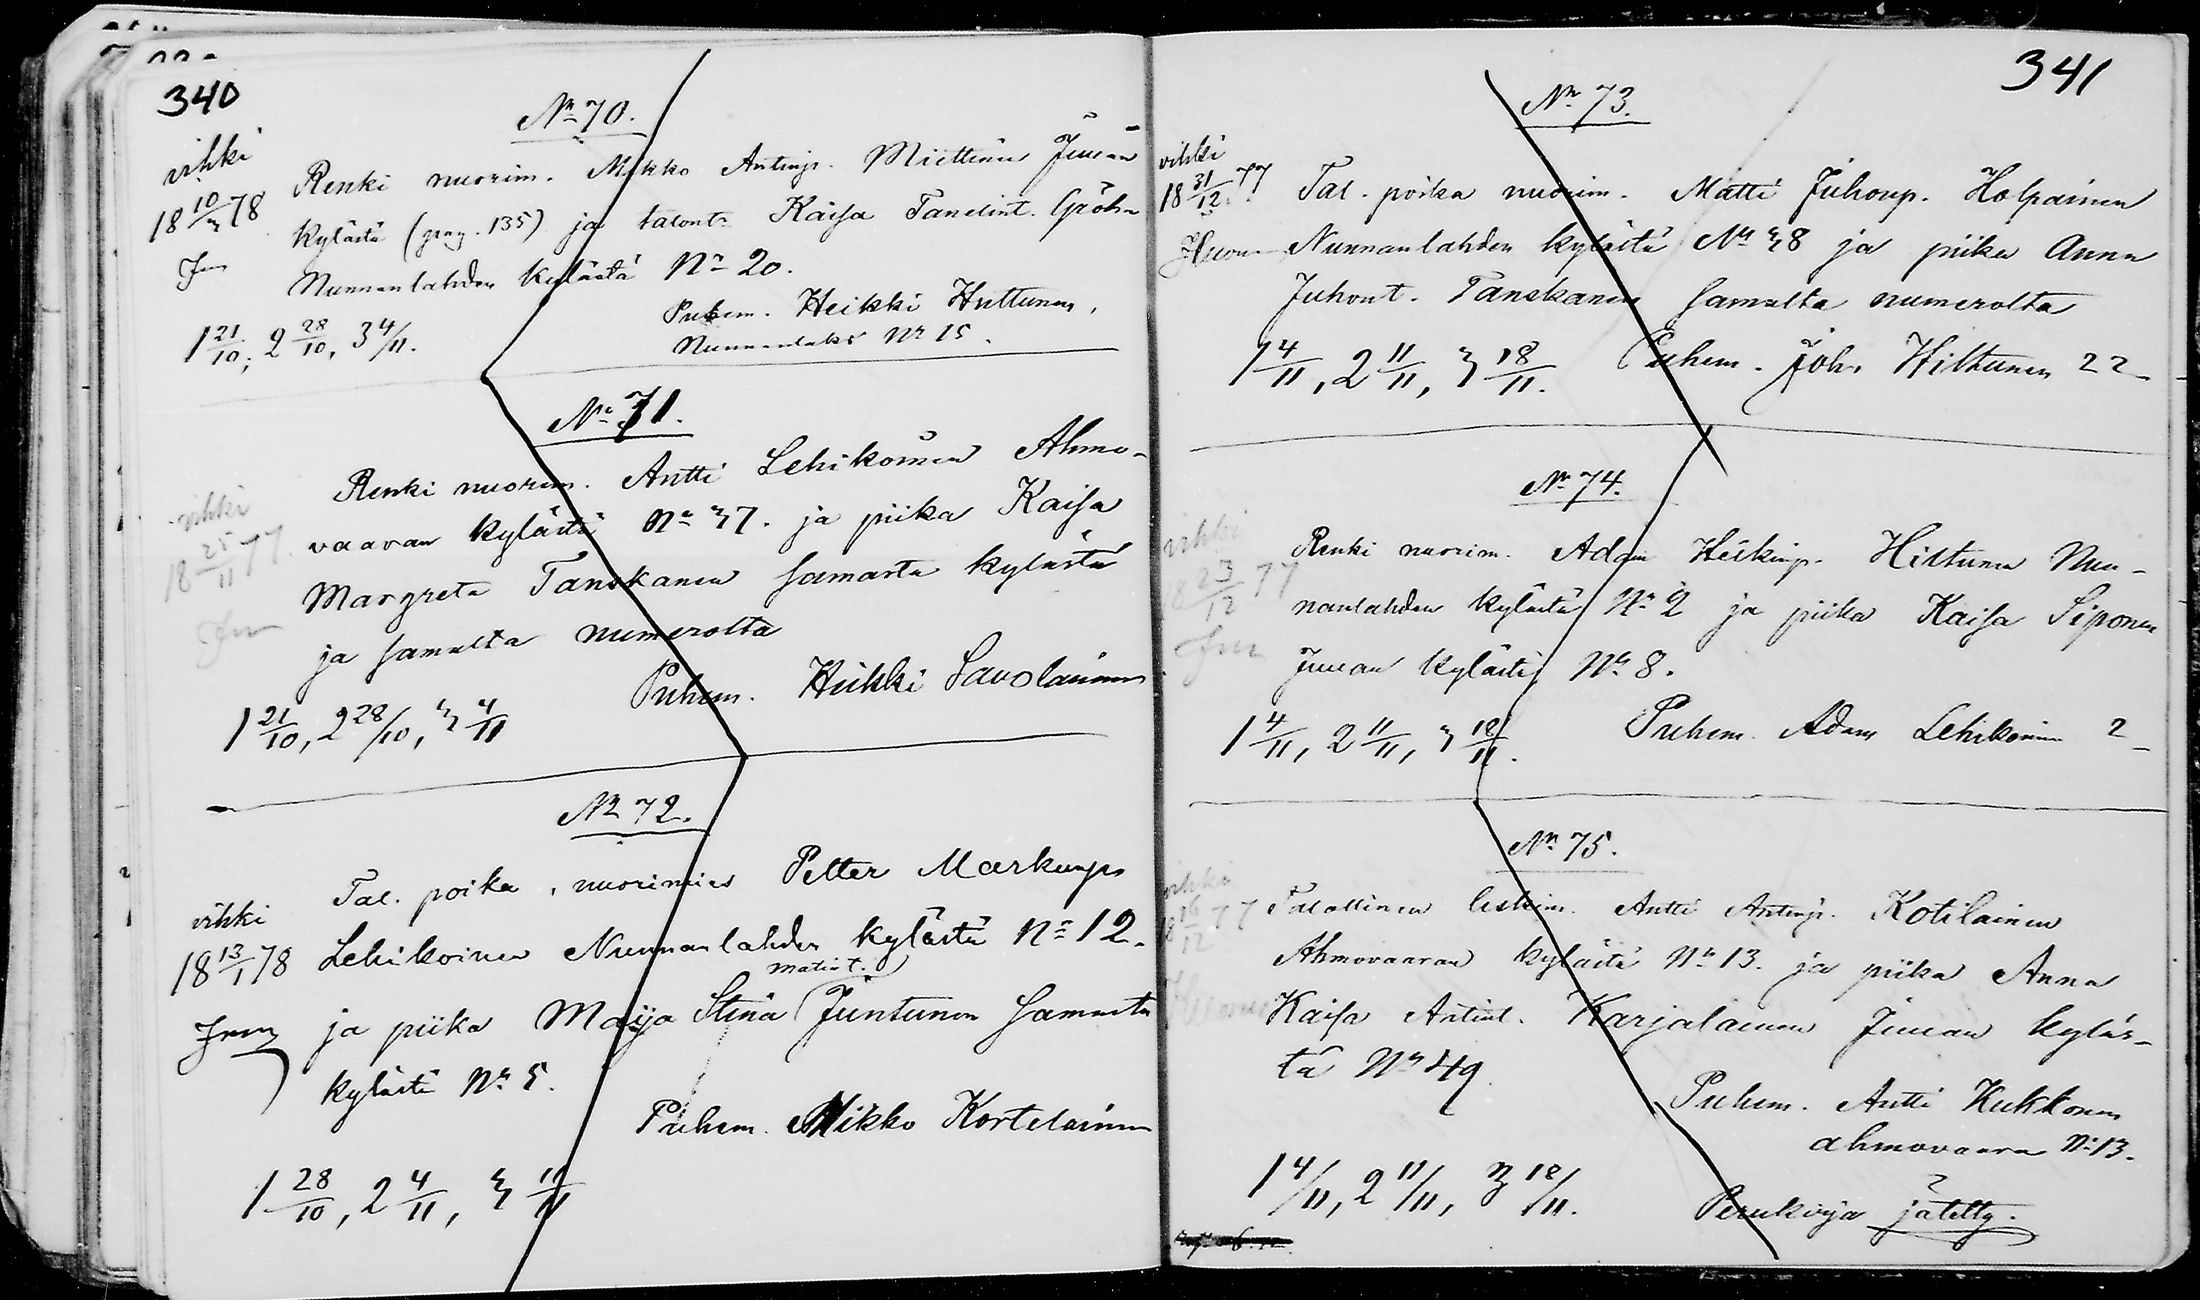 340
No 70.
vihki
18 10/3 78
Renki nuorim. Mikko Antinp. Miettinen Juuan
kylästä (prag. 135) ja talont. Kaisa Tanelint. Gröhn
Nunnanlahden kylästä No 20.
Puhem. Heikki Huttunen,
Nunnanlaks No 15.
1 21/10, 2 28/10, 3 4/11.
No 71.
vihki
18 25/11 77
Renki nuorim. Antti Lehikoinen Ahmo-
vaaran kylästä No 37. ja piika Kaisa
Margreta Tanskanen samasta kylästä
ja samalta numerolta
Puhem. Heikki Savolainen
1 21/10, 2 28/10, 3 4/11
No 72.
Tal. poika, nuorimies Petter Markunp.
vihki
18 13/1 78
Lehikoinen Nunnanlahden kylästä No 12.
matint.
ja piika Maija Stina Juntunen samasta
kylästä No 5.
Puhem. Mikko Kortelainen
1 28/10, 2 4/11, 3 11/11
341
No 73.
vihki
18 31/12 77
Tal. poika nuorim. Matti Juhonp. Holpainen
Nunnanlahden kylästä No 38 ja piika Anna
Juhont. Tanskanen samalta numerolta
1 4/11, 2 11/11, 3 18/11. Puhem. Joh. Hiltunen 22
No 74.
vihki
18 23/12 77
Renki nuorim. Adam Heikinp. Hiltunen Nun-
nanlahden kylästä No 2 ja piika Kaisa Siponen
Juuan kylästä No 8.
1 4/11, 2 11/11, 3 18/11. Puhem. Adam Lehikoinen 2
No 75.
vihki
18 16/12 77
Talollinen leskim. Antti Antinp. Kotilainen
Ahmovaaran kylästä No 13. ja piika Anna
Kaisa Antint. Karjalainen Juuan kyläs-
tä No 49
Puhem. Antti Kukkonen
ahmovaara No 13.
1 4/11, 2 11/11, 3 18/11.
Perukirja jätetty.